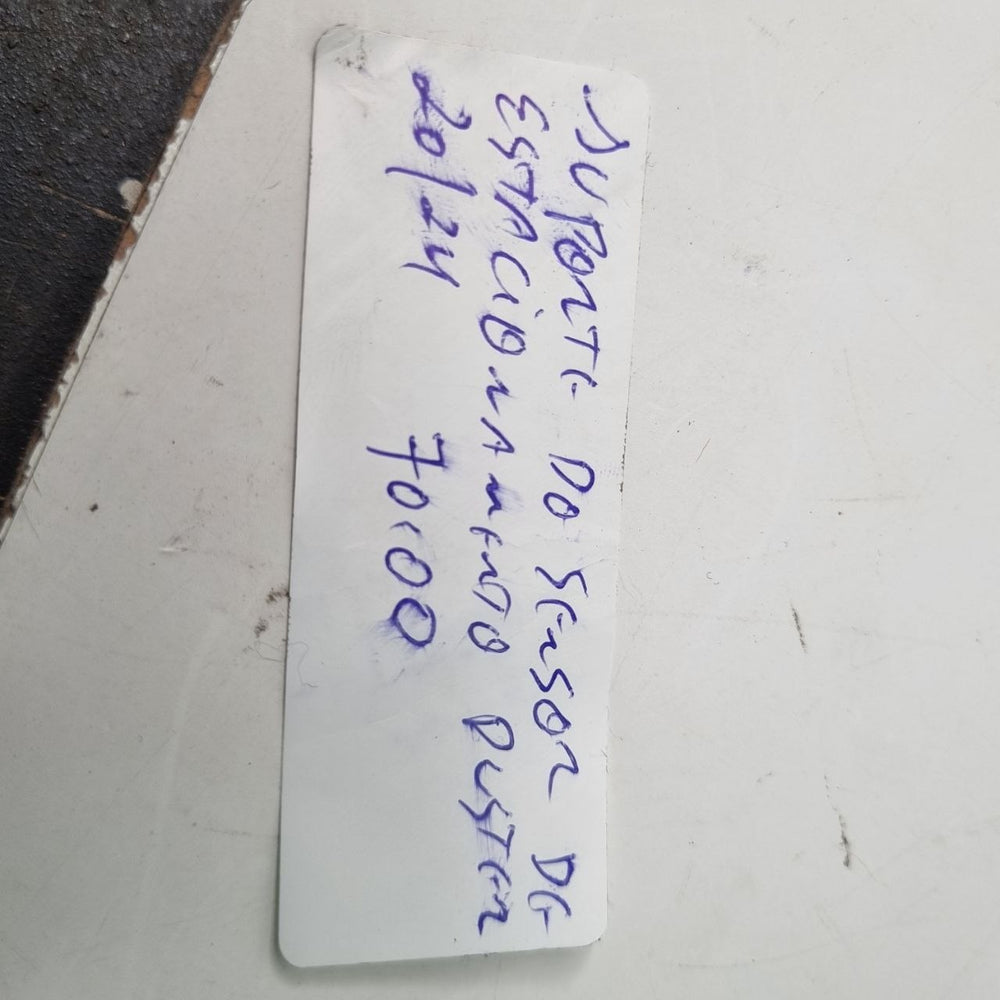 SUPORTE DO SENSOR DE
ESTACIONAMENTO DUSTER
20/24 70,00